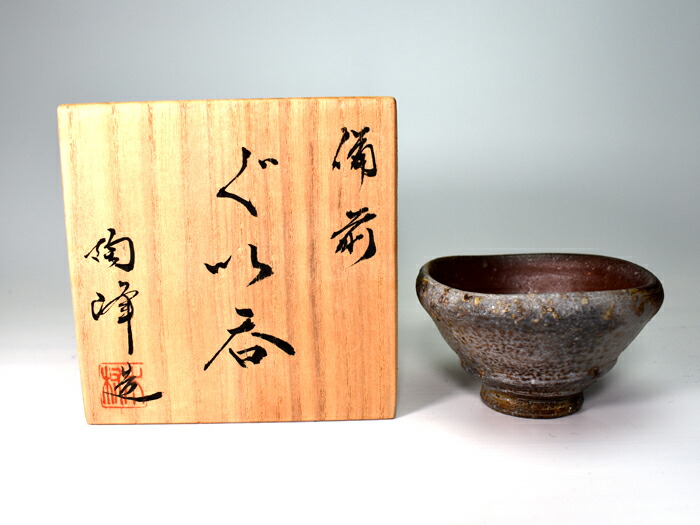 備前
ぐい呑
陶峰造